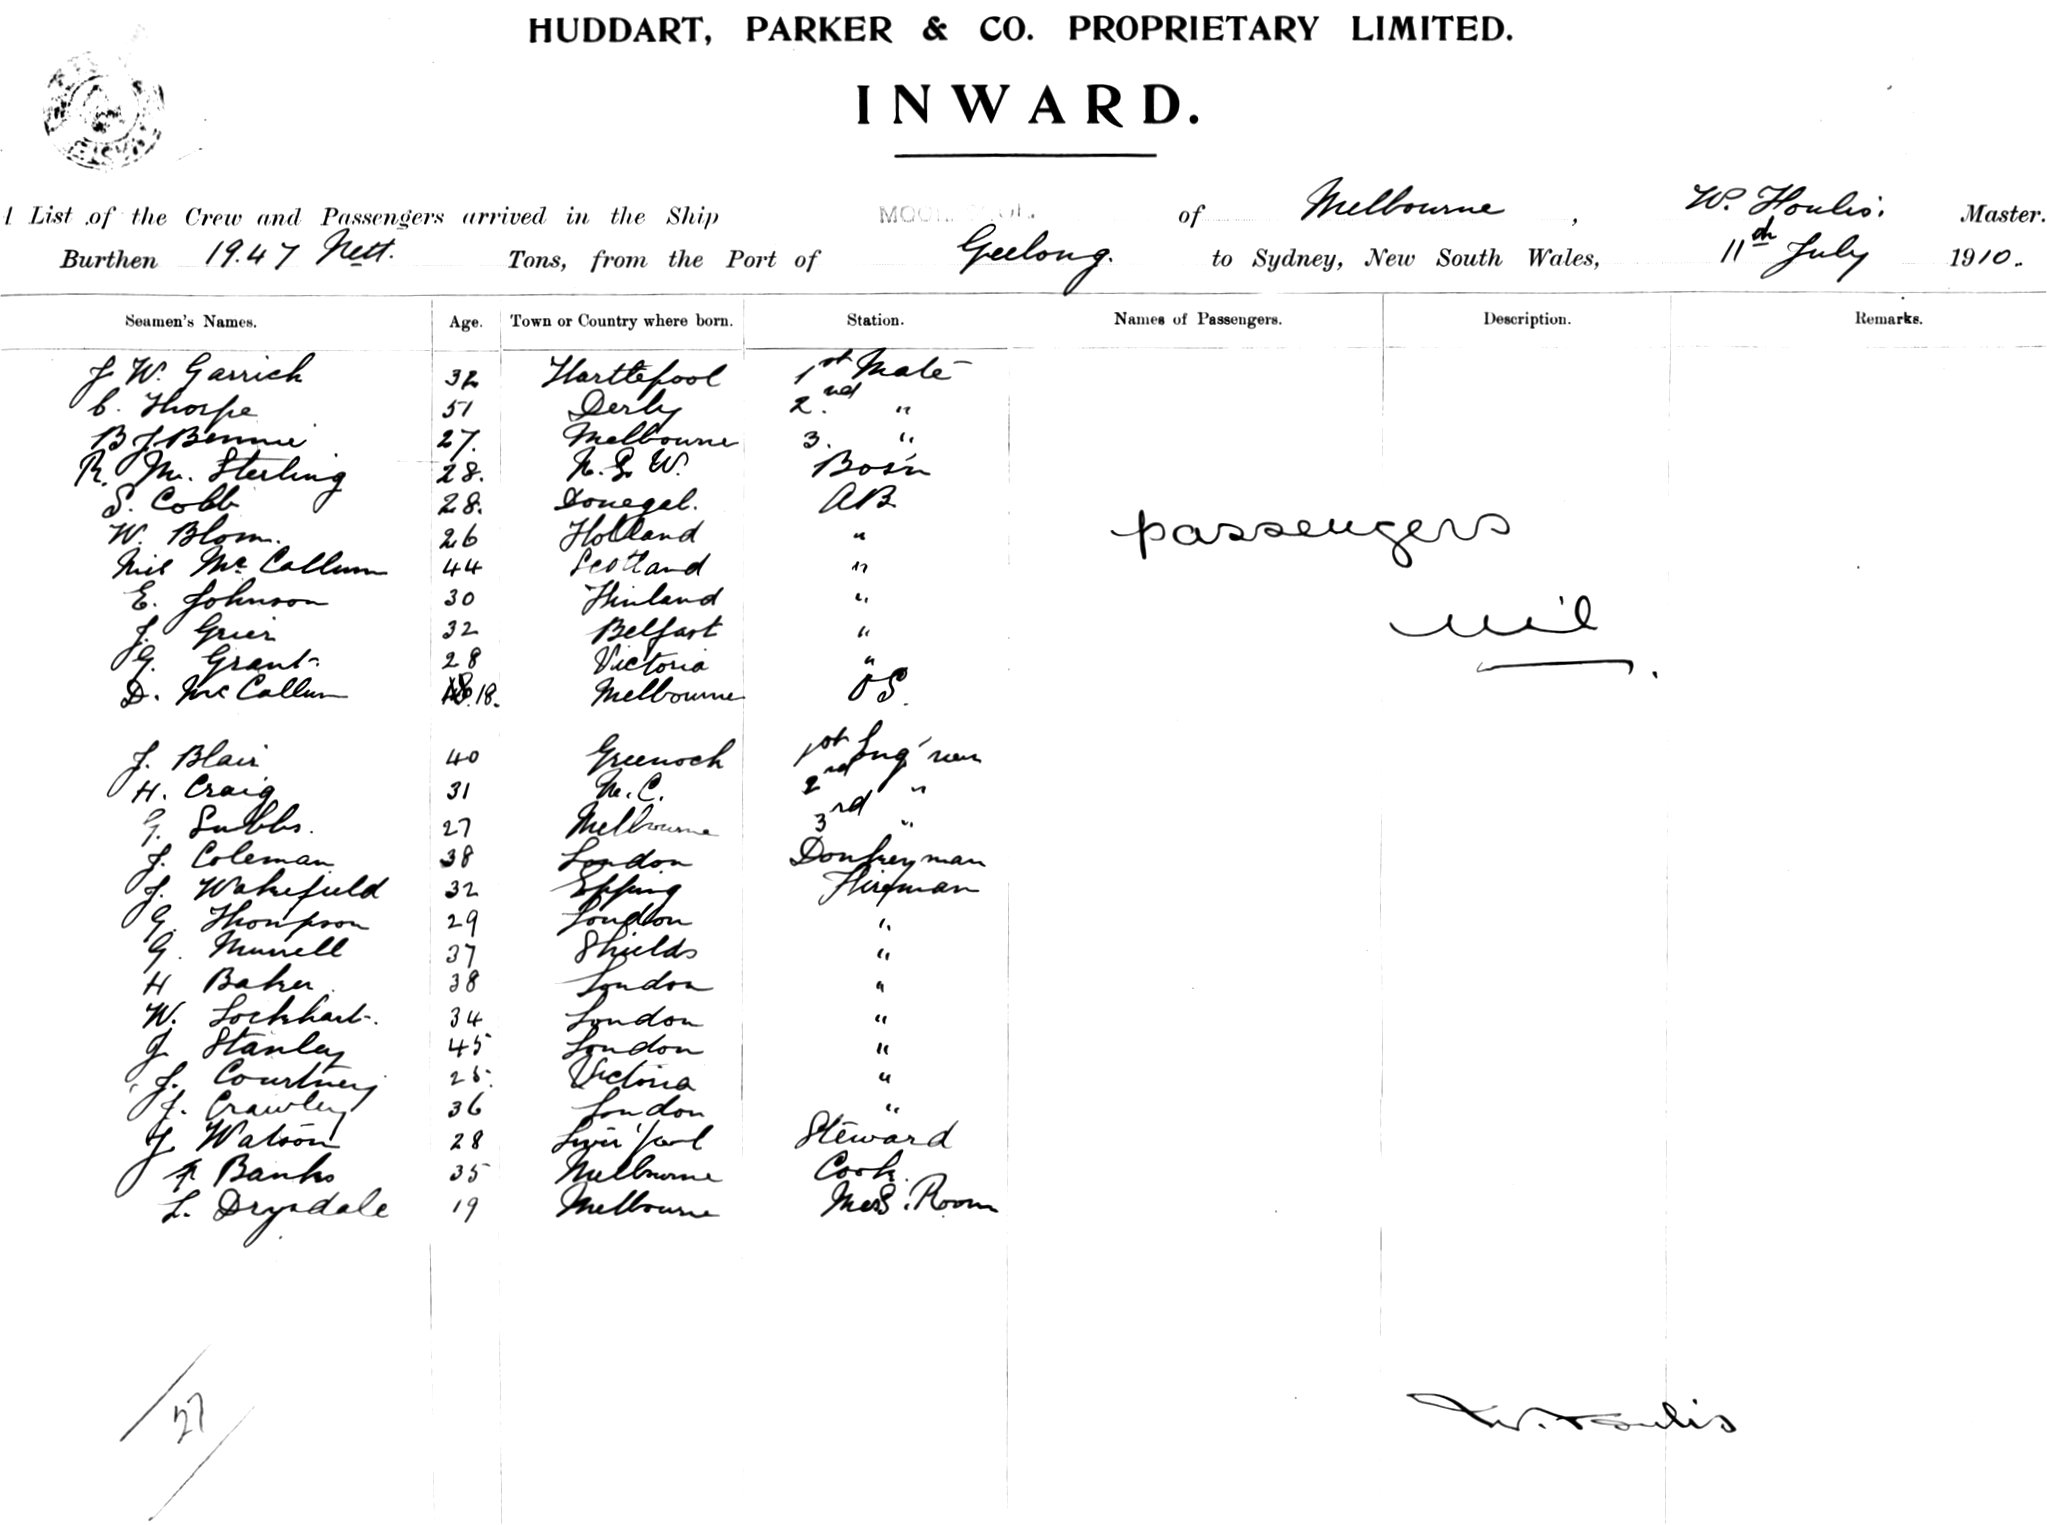 HUDDART, PARKER & CO. PROPRIETARY LIMITED.
INWARD.
List of the Crew and Passengers arrived in the Ship of Melbourne, W. Houlis. Master.
Burthen 19.47 Nett. Tons, from the Port of Geelong. to Sydney, New South Wales, 11th July 1910.
Seamen's Names. Age. Town or Country where born. Station. Names of Passengers. Description. Remarks.
J W. Garrick 32 Hartlepool 1st Mate
C. Thorpe 51 Derby 2.nd "
B J Bennie 27. Melbourne 3. "
R. M. Sterling 28. N. S. W. Bos'n
S. Cobb 28. Donegal. AB
passengers
W. Blom. 26 Holland "
Neil Mc Callum 44 Scotland "
E. Johnson 30 Finland "
nil
J. Grier 32 Belfast "
G. Grant 28 Victoria "
D. McCallum 18. Melbourne OS.
J. Blair 40 Greenock 1st Eng'neer
H. Craig 31 N. C. 2nd "
G. Subbs. 27 Melbourne 3rd "
J. Coleman 38 London Donkeyman
J. Wakefield 32 Epping Fireman
G. Thompson 29 London "
G. Murrell 37 Shields "
H Baker 38 London "
W. Lockhart. 34 London "
J Stanley 45 London "
J. Courtney 25. Victoria "
J. Crawley 36 London "
J Watson 28 Liver'pool Steward
Banks 35 Melbourne Cook.
L. Drysdale 19 Melbourne Mess. Room
27
W. Houlis